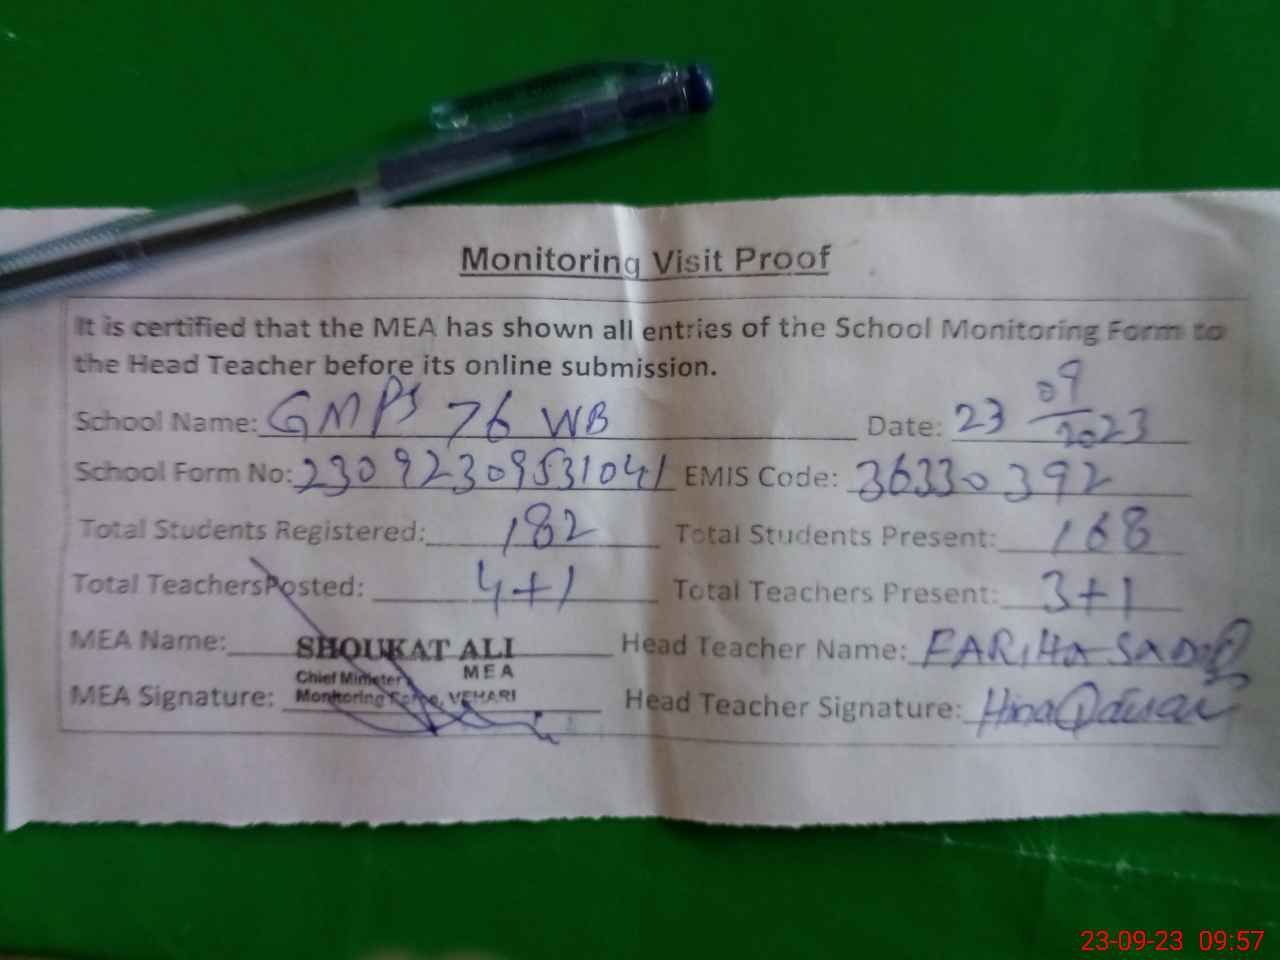 Monitoring Visit Proof
It is certified that the MEA has shown all entries of the School Monitoring Form to
the Head Teacher before its online submission.
School Name: GMPS 76 WB Date: 23 09 2023
School Form No: 23092309531041 EMIS Code: 36330392
Total Students Registered: 182 Total Students Present: 168
Total TeachersPosted: 4+1 Total Teachers Present: 3+1
MEA Name: SHOUKAT ALI Head Teacher Name: FARiHa SADiQ
MEA
Chief Minister
MEA Signature: Monitoring Force, VEHARI Head Teacher Signature: Hina
23-09-23 09:57